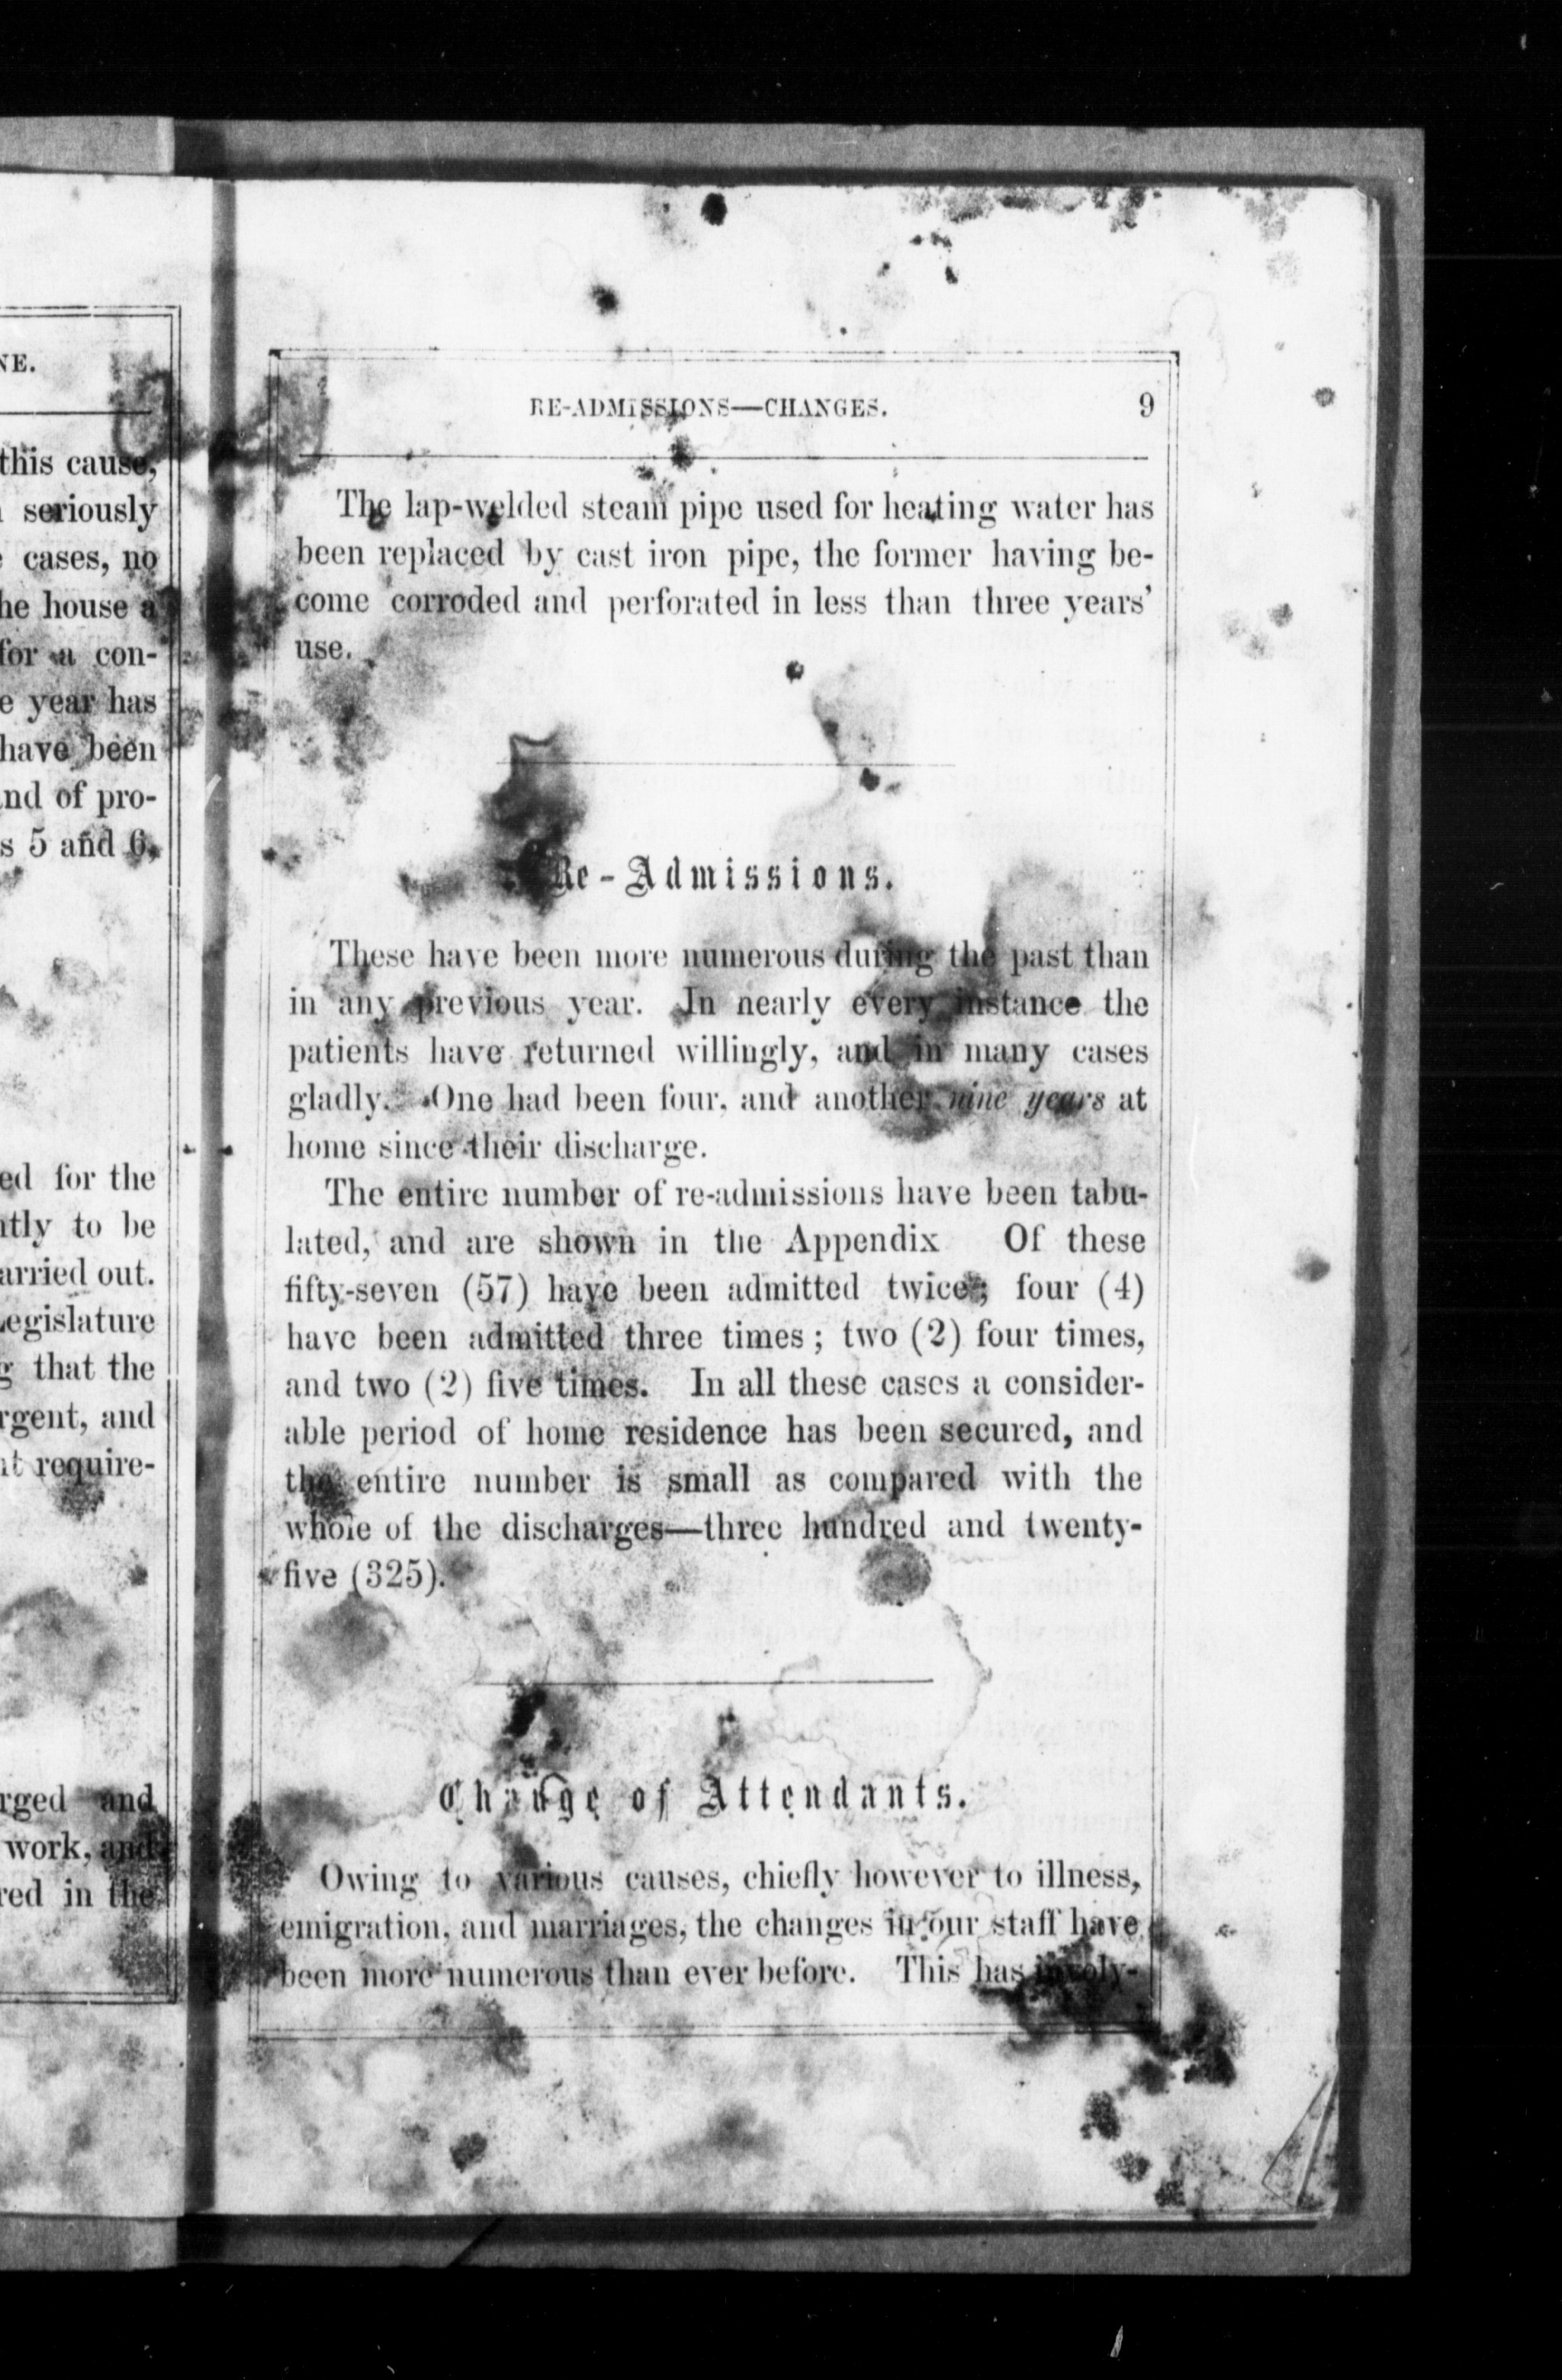 NE.
this cause,
seriously
cases, no
he house a
for a con-
e year has
have been
and of pro-
s 5 and 6,
ed for the
ntly to be
arried out.
Legislature
g that the
rgent, and
nt require-
rged and
work, and
red in the
RE-ADMISSIONS—CHANGES. 9
The lap-welded steam pipe used for heating water has
been replaced by cast iron pipe, the former having be-
come corroded and perforated in less than three years'
use.
Re-Admissions.
These have been more numerous during the past than
in any previous year. In nearly every instance the
patients have returned willingly, and in many cases
gladly. One had been four, and another nine years at
home since their discharge.
The entire number of re-admissions have been tabu-
lated, and are shown in the Appendix Of these
fifty-seven (57) have been admitted twice; four (4)
have been admitted three times; two (2) four times,
and two (2) five times. In all these cases a consider-
able period of home residence has been secured, and
the entire number is small as compared with the
whole of the discharges—three hundred and twenty-
five (325).
Change of Attendants.
Owing to various causes, chiefly however to illness,
emigration, and marriages, the changes in our staff have
been more numerous than ever before. This has involv-